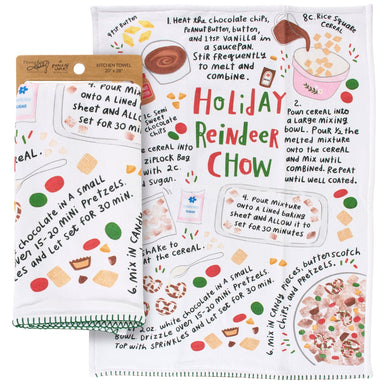 KITCHEN TOWEL
20" x 28"
4. Pour mixture
onto a lined
sheet and allow
for 30 min
chocolate in a small
oven 15-20 mini pretzels.
s and let set for 30 min.
6. mix in candy
1tsp Butter
1. Heat the chocolate chips,
peanut butter, butter,
and 1tsp vanilla in
a saucepan.
Stir frequently
to melt and
combine.
8c. Rice Square
Cereal
Holiday
Reindeer
Chow
2.
Pour cereal into
a large mixing
bowl. Pour 1/2 the
melted mixture
onto the cereal
and mix until
combined. Repeat
until well coated.
Semi
Sweet
Chocolate
Chips
cereal into
Ziplock bag
with 2c.
sugar.
Shake to
coat the cereal.
4. Pour mixture
onto a lined baking
sheet and allow it to
set for 30 minutes
2oz. white chocolate in a small
bowl. Drizzle over 15-20 mini pretzels.
Top with sprinkles and let set for 30 min.
6. mix in candy pieces, butterscotch
chips, and pretzels.